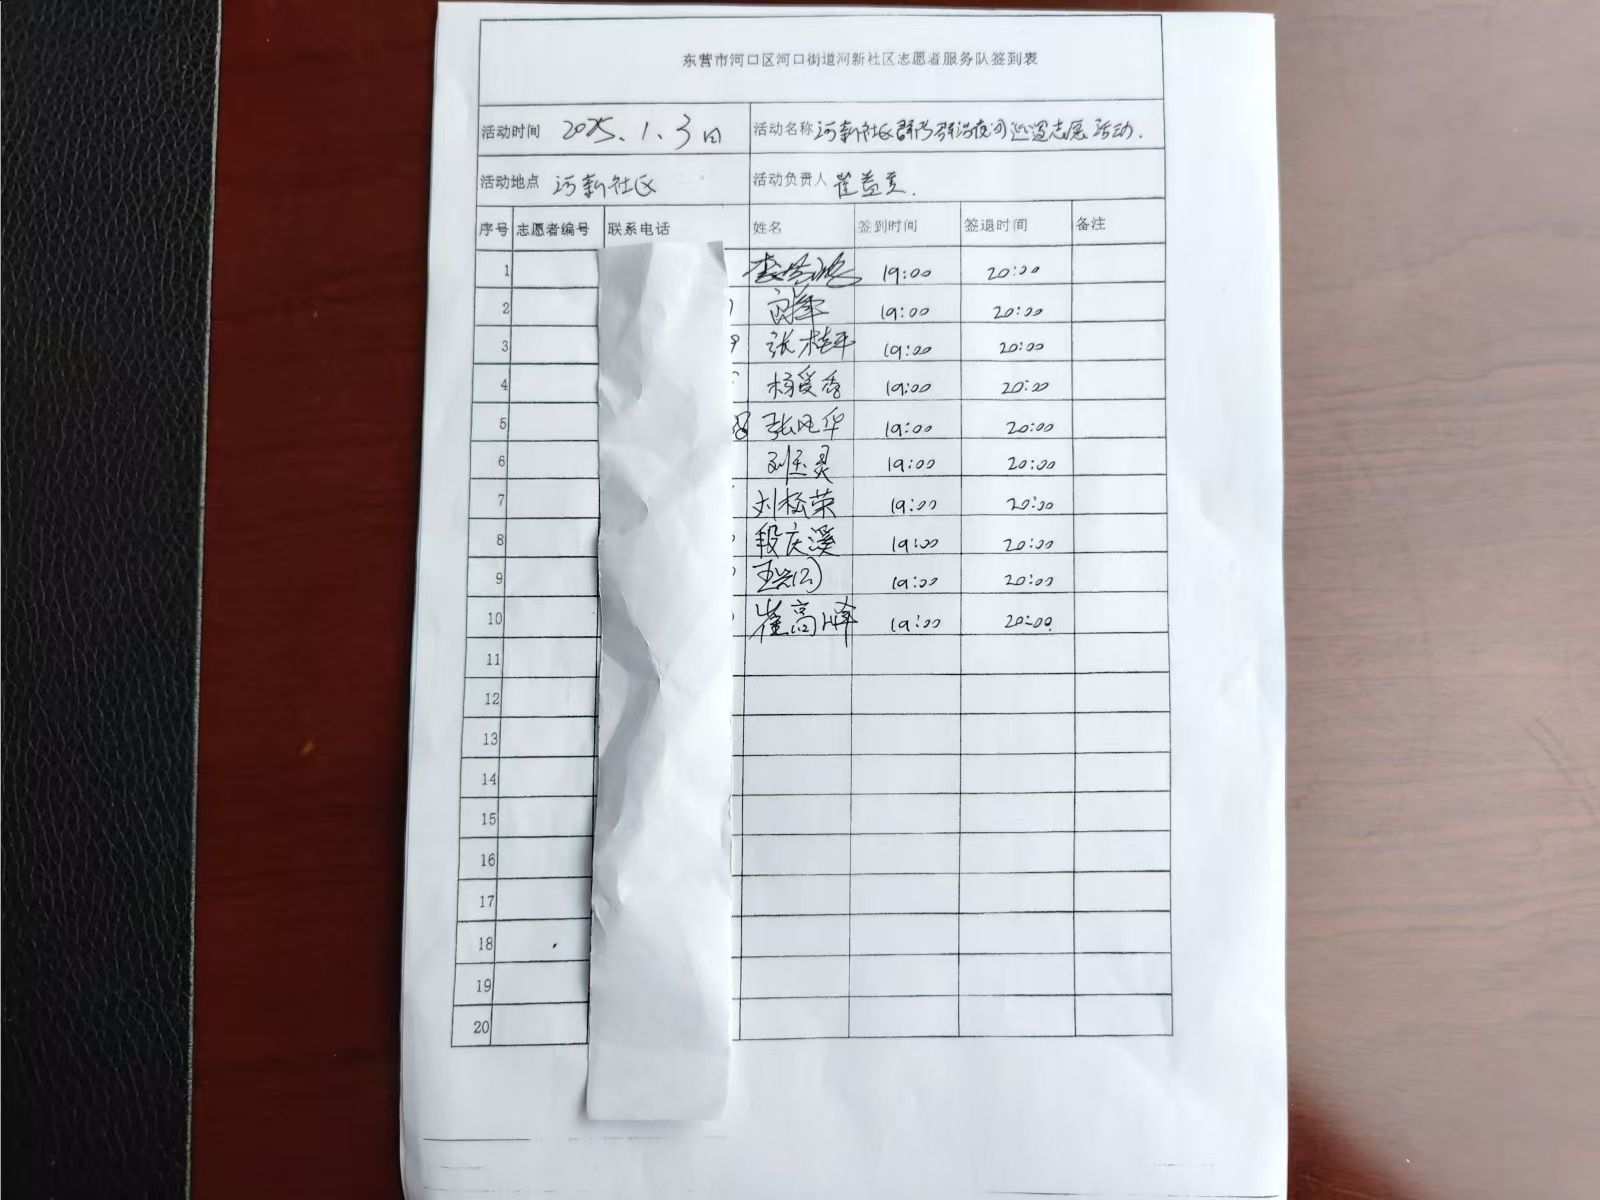 东营市河口区河口街道河新社区志愿者服务队签到表
活动时间 2025.1.3日 活动名称 河新社区群防群治夜间巡逻志愿活动.
活动地点 河新社区 活动负责人 崔
序号 志愿者编号 联系电话 姓名 签到时间 签退时间 备注
1 19:00 20:00
2 19:00 20:00
3 张桂平 19:00 20:00
4 杨爱香 19:00 20:00
5 张风华 19:00 20:00
6 刘玉灵 19:00 20:00
7 刘松荣 19:00 20:00
8 段庆溪 19:00 20:00
9 19:00 20:00
10 崔高峰 19:00 20:00
11
12
13
14
15
16
17
18
19
20